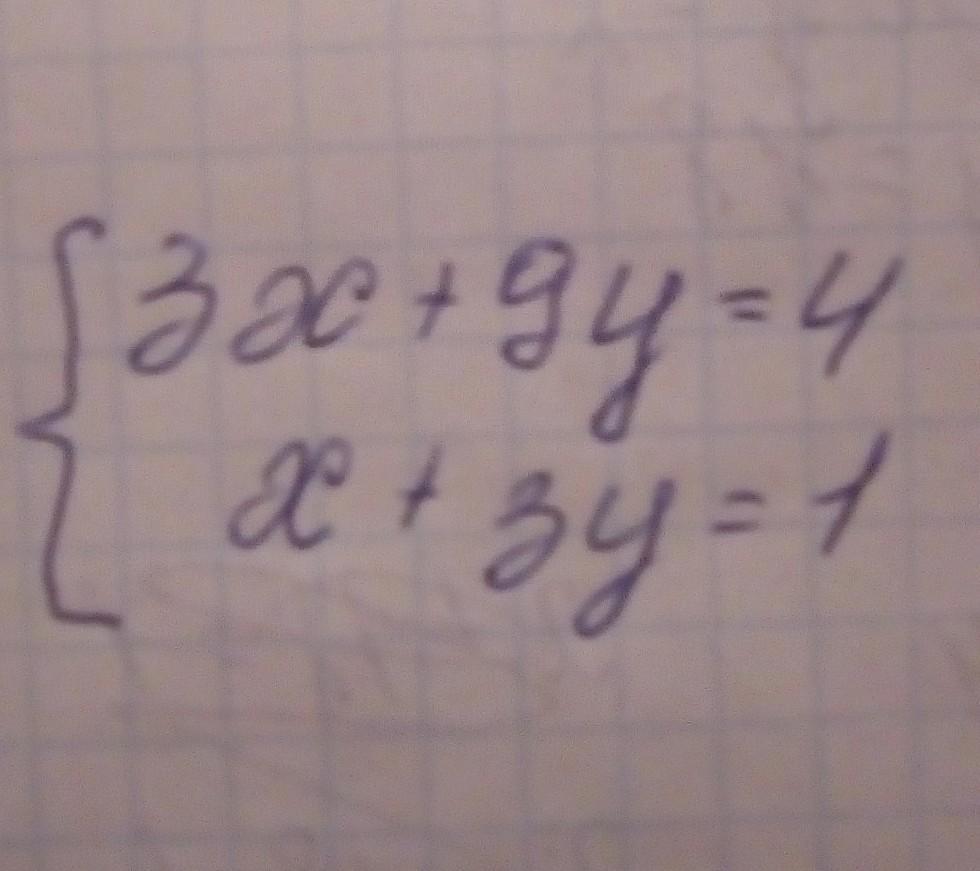 3x + 9y = 4
x + 3y = 1